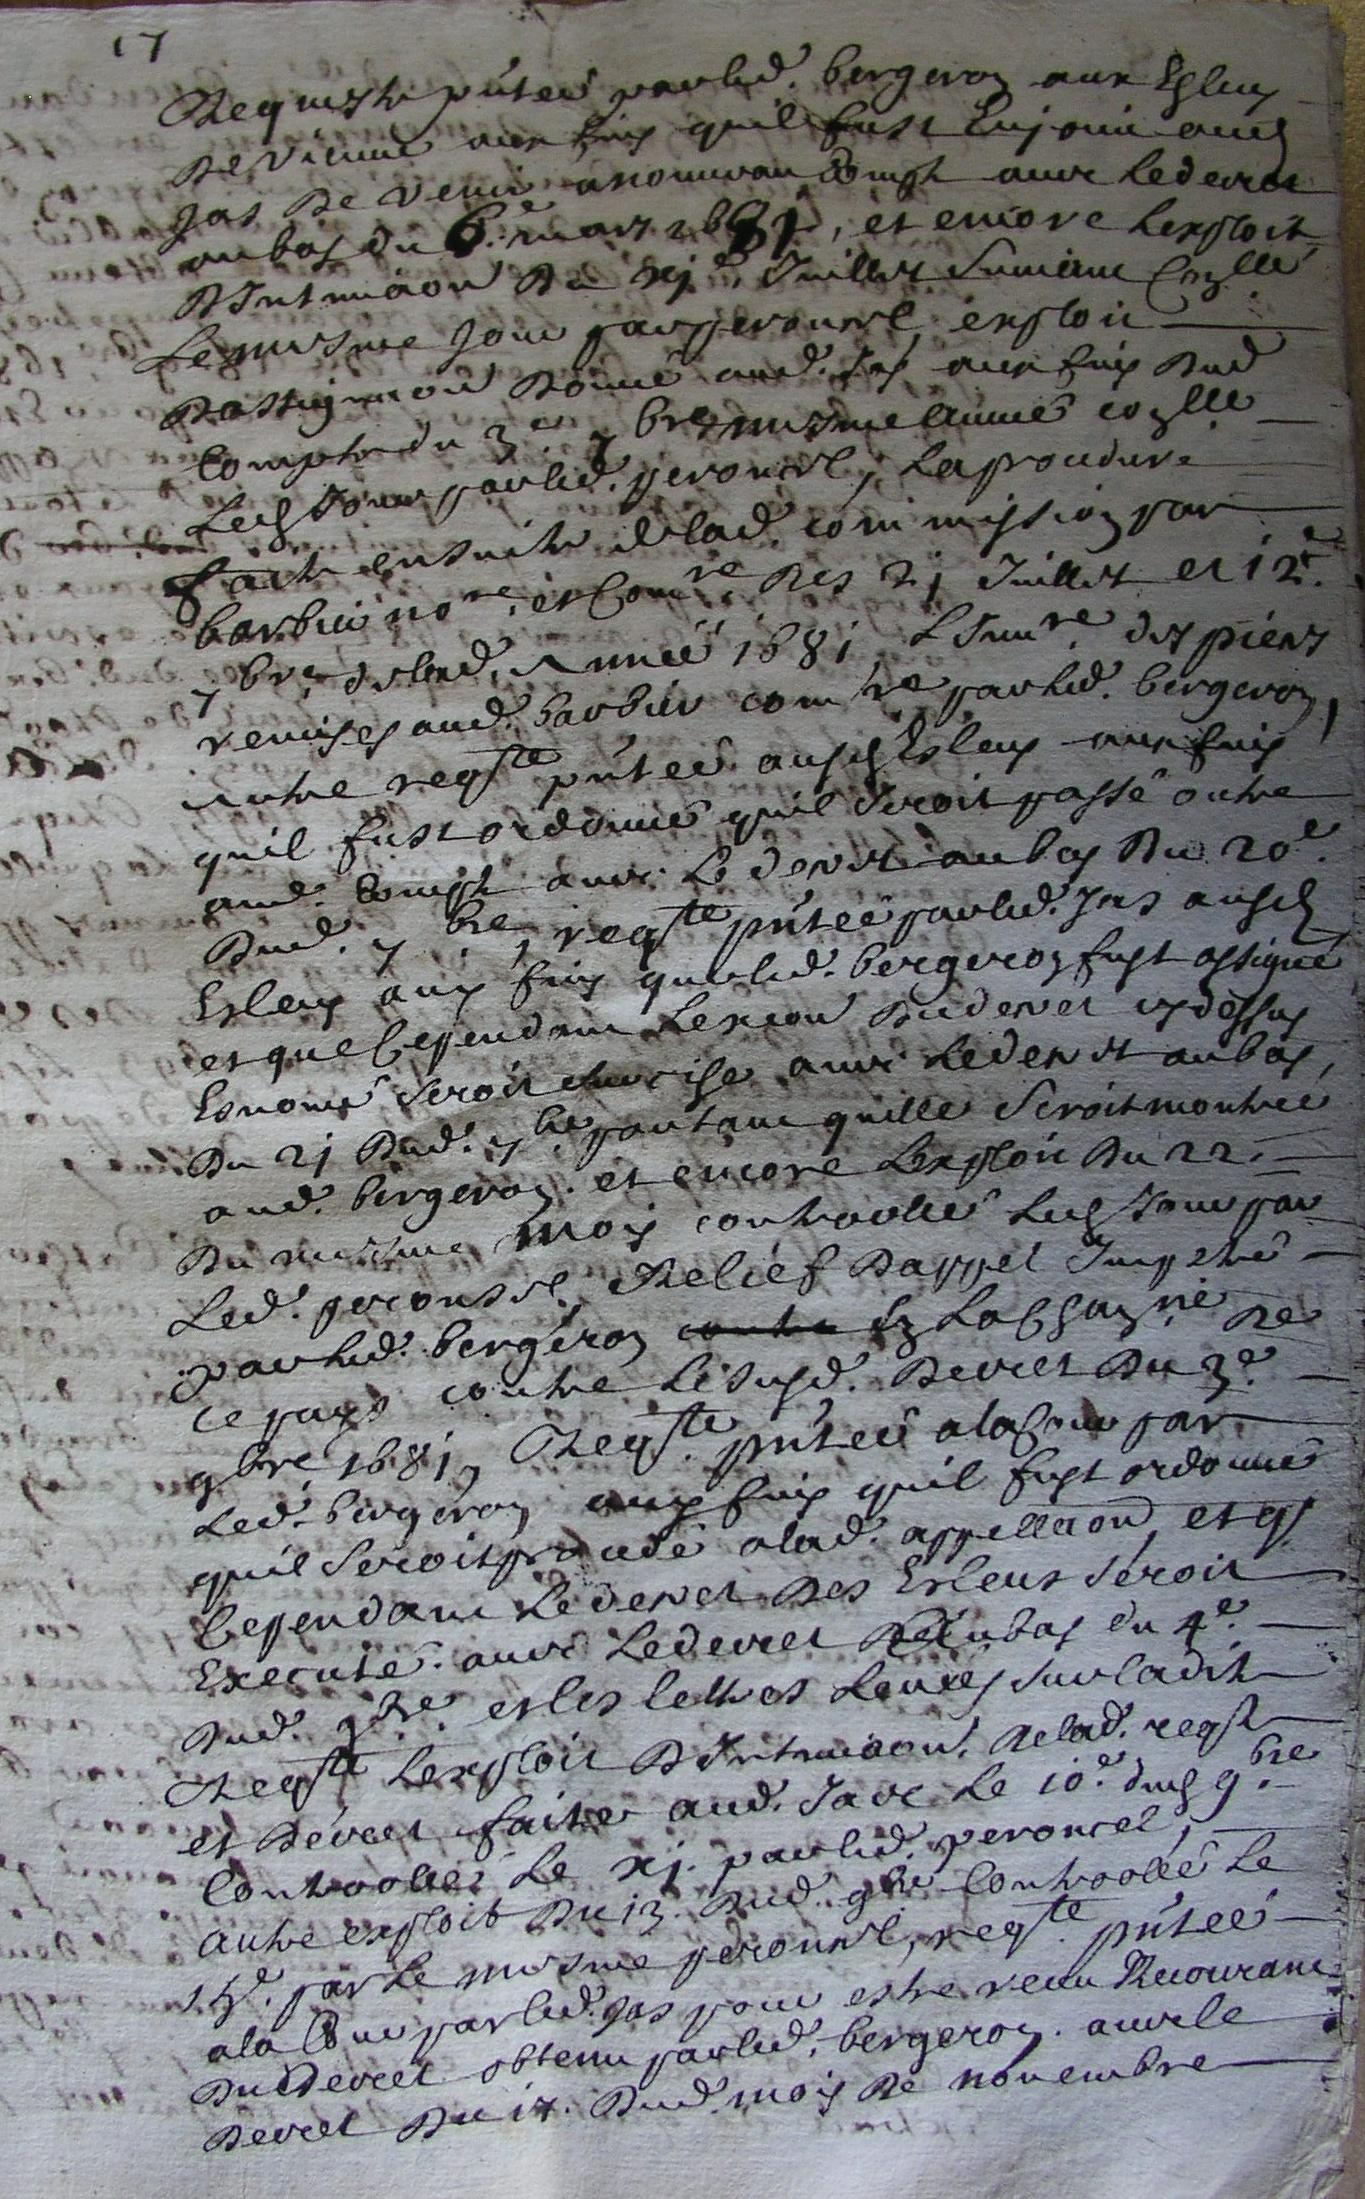 17
Requeste p̃ntee par led. bergeron aux Esleus
de Vienne aux fins quil fust Enjoint aud
Jas de venir a nouveau compte avec le decret
au bas du 6.e mars 1681, et encore Lexploit
dIntima͠on du xj.e Juillet suivant Con.llé
Le mesme jour par peroncel exploit
dassigna͠on donné aud. Jas aux fins dud
Compte du 3.e 7bre mesme année con.llé
Led Jour par led. peroncel, La procedure
faite ensuite de lad. commission par
barbier no.re et Com.re des 21 Juillet et 12.e
7bre de lad. Année 1681, LInv.re des pieces
remises aud. barbier com.re par led. bergeron,
Autre reqte p̃ntée ausd Esleus aux fins
quil fust ordonné quil seroit passé outre
aud. compte avec Le decret au bas du 20.e
dud. 7bre, reqte p̃ntée par led. Jas ausd
Esleus aux fins que led. bergeron fust assigné
et que Cependant Lexe͠on du decret cy dessus
Enoncé seroit avec Le decret au bas,
du 21 dud. 7bre partant quelle seroit montree
aud. bergeron. et encore Lexploit du 22.
du mesme mois controollé led Jour par
Led. peronsel, Relief dappel Impetré
par led. bergeron en La Chan.rie de
ce pays contre le susd. decret du 3.e
9bre 1681, Reqte. p̃ntée a la Cour par
Led. bergeron aux fins quil fust ordonné
quil seroit procedé a lad. appella͠on, et q̃
Cependant Le decret des Esleus seroit
Executé. avec Le decret au bas du 4.e
dud. 9bre. et les lettres Levées sur ladite
Reqte Lexploit dIntima͠on. de lad. reqte
et decret faite aud. Jas Le 10.e dud 9bre
Controollé Le xj. par led. peroncel,
autre exploit du 13. dud. 9bre Controollé Le
par Le mesme peroncel, reqte p̃ntée
a la Cour par led. Jas pour estre receu Recourant
du decret obtenu par led. bergeron. avec le
decret du 17. dud. mois de novembre